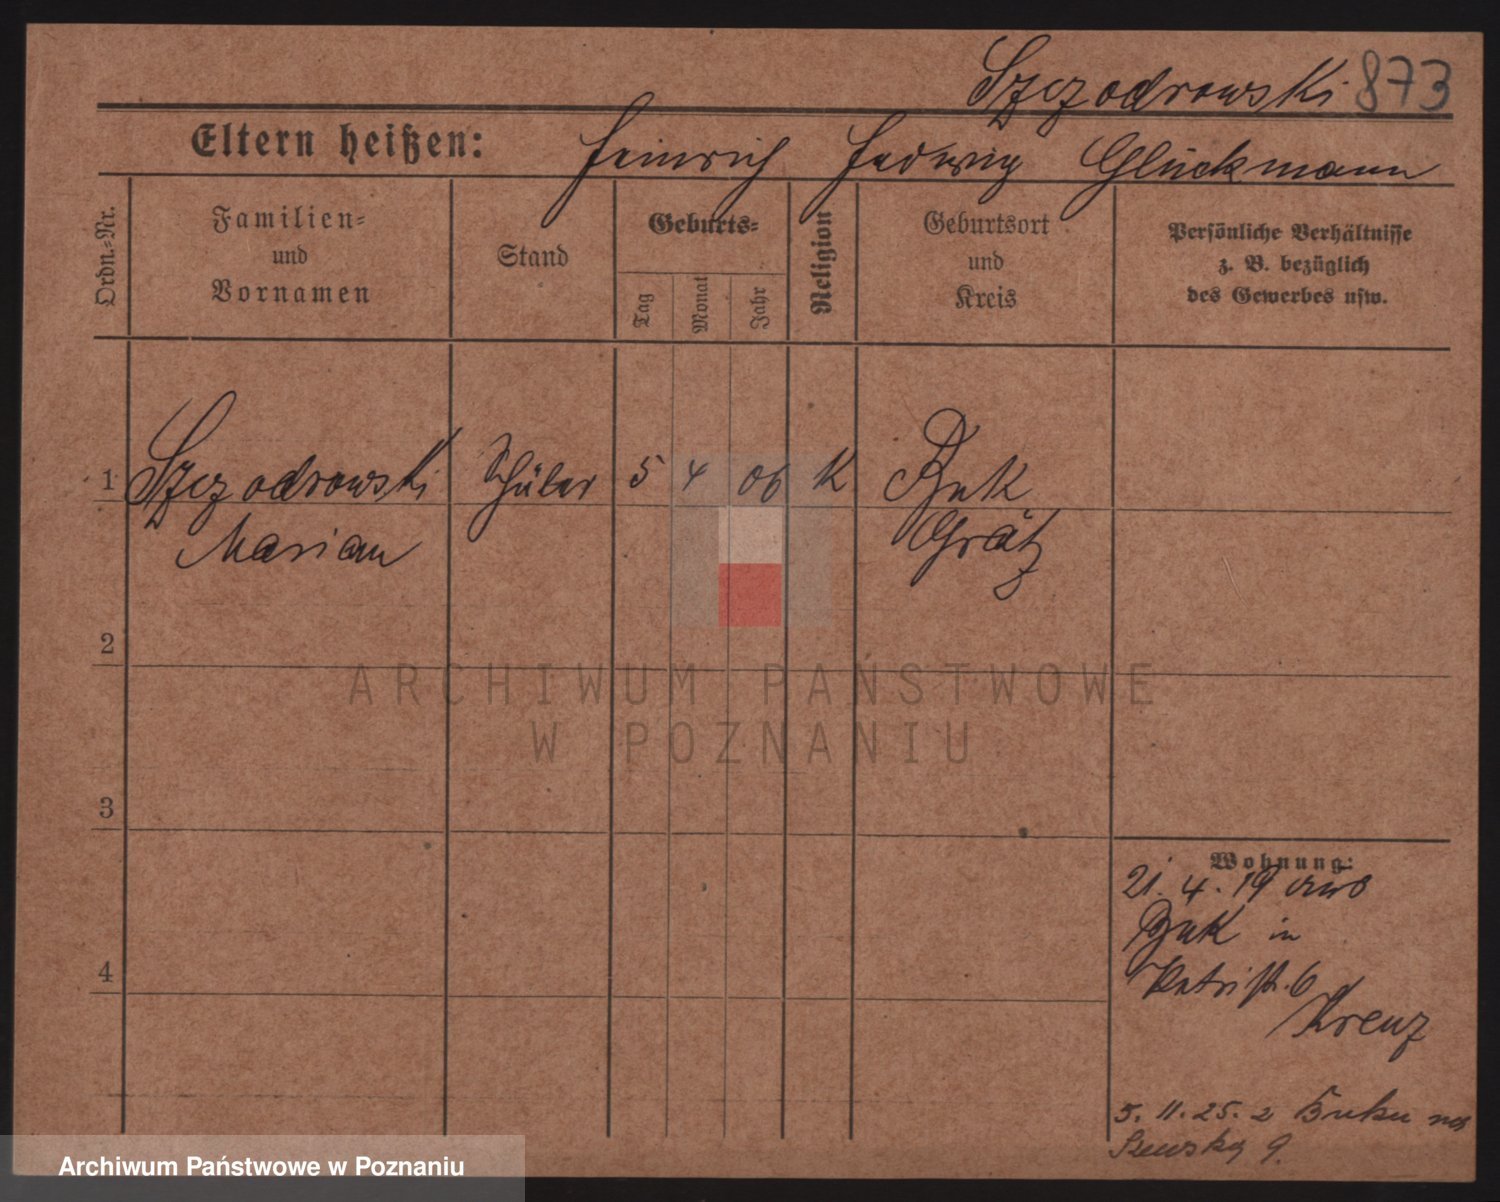 Szczodrowski 873
Eltern heißen: Heinrich Hedwig Glückmann
Ordn.-Nr.
Familien-
und
Vornamen
Stand
Geburts-
Tag
Monat
Jahr
Religion
Geburtsort
und
Kreis
Persönliche Verhältnisse
z. B. bezüglich
des Gewerbes usw.
1 Szczodrowski Schüler 5 4 06 K Buk
Marian Grätz
2
ARCHIWUM PAŃSTWOWE
W POZNANIU
3
4
Wohnung:
21. 4. 19 aus
Buk in
Petristr. 6
Kreuz
5. 11. 25. z Buku na
Szewską 9.
Archiwum Państwowe w Poznaniu